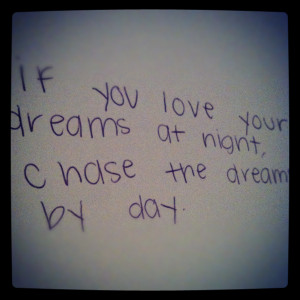 if you love your
dreams at night,
chase the dream
by day.